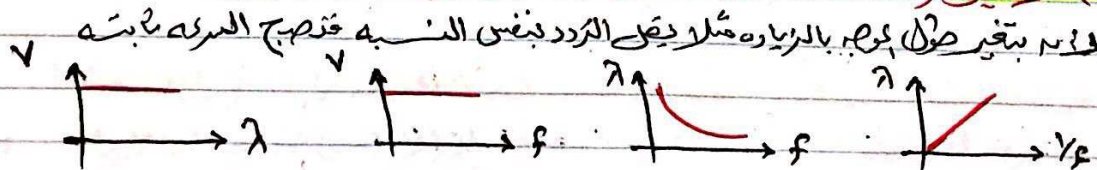 بتغير طول الموجه بالزياده مثلا يقل التردد بنفس النسبه فتصبح السرعه ثابته
V λ V f λ f λ 1/f